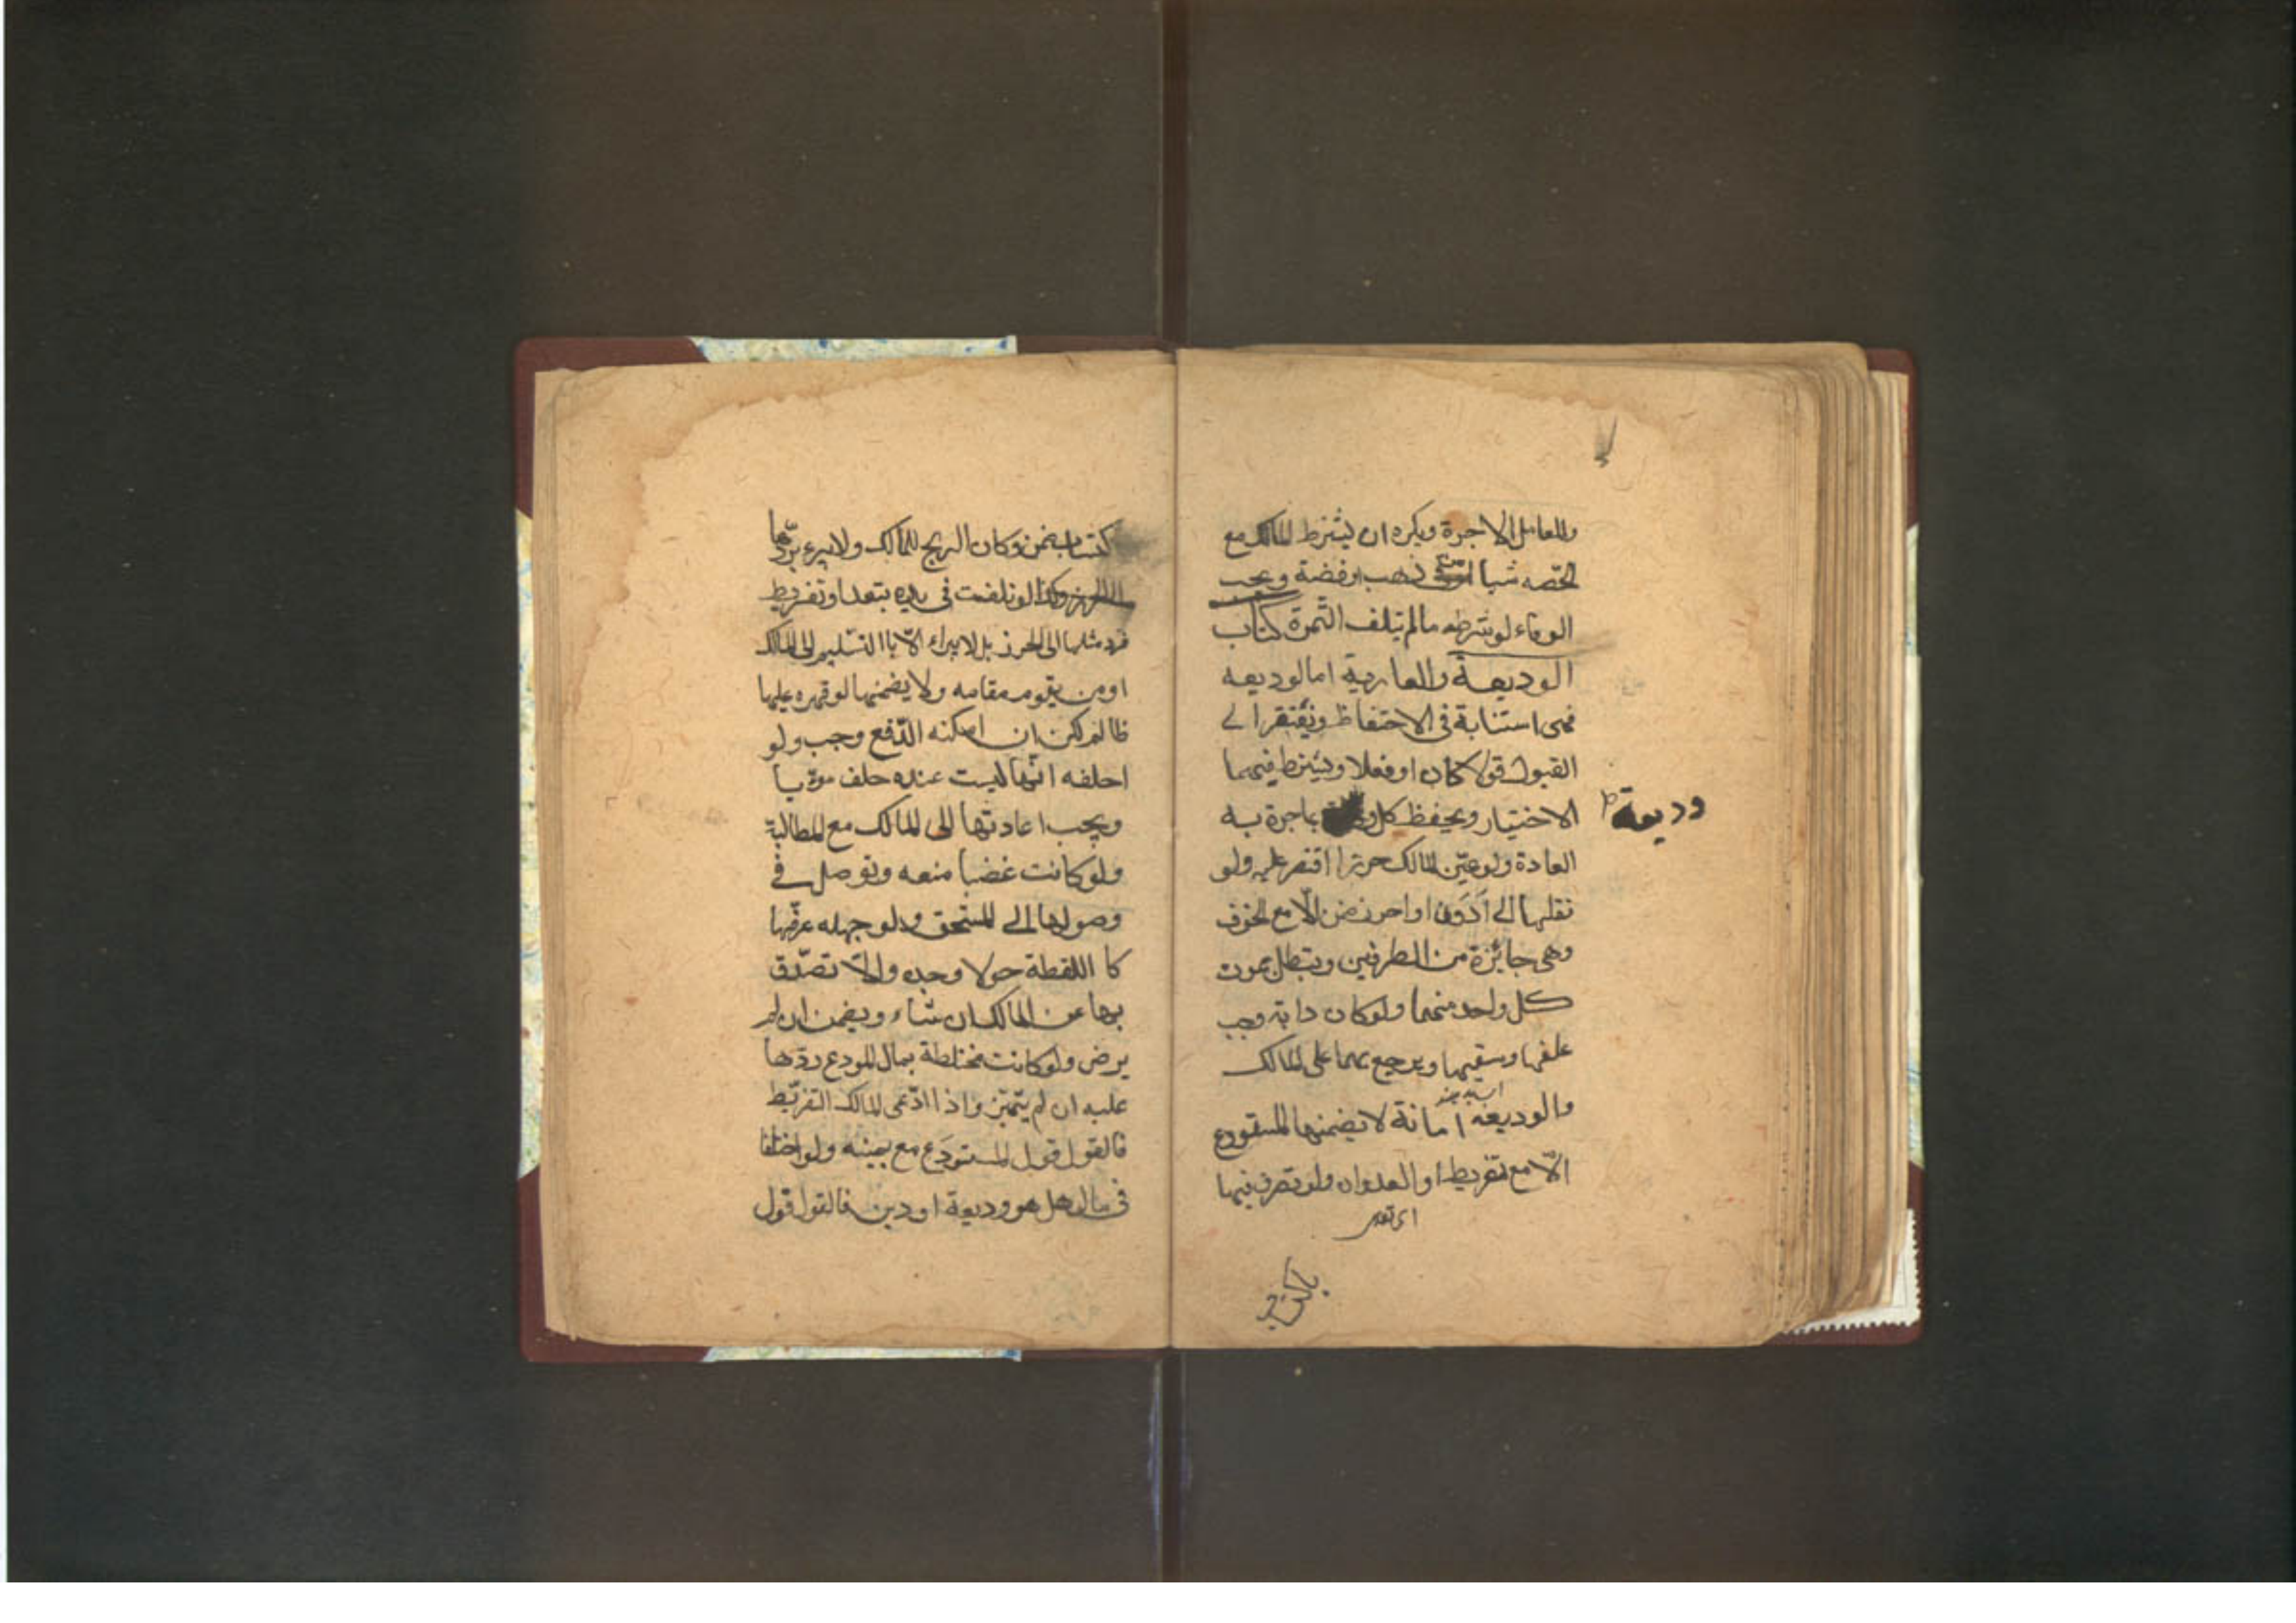 وللعامل الاجرة ويكره ان يشترط المالك مع
الحصّه شيا من ذهب او فضة ويجب
الوفاء لو شرطه مالم يتلف الثّمرة كتاب
الوديعة والعارية اما الوديعه
فهى استنابة فى الاحتفاظ ويفتقر الى
القبول قولا كان او فعلا ويشترط فيهما
الاختيار ويحفظ كل وديعة بما جرة به
وديعة
العادة ولو عيّن المالك حرزا اقتصر عليه ولو
نقلها الى اَدوَن او احرز ضمن الّا مع الخوف
وهى جائزة من الطرفين ويبطل بموت
كل واحد منهما ولو كان دابة وجب
علفها وسقيها ويرجع بهما على المالك
والوديعه امانة لا يضمنها المستودع
الّا مع تفريط او العدوان ولو تصرف فيها
كتسب ضمن وكان الربح للمالك ولا يبرء بردّها
الى الحرز وكذا لو تلفت فى يده بتعد او تفريط
فرد مثلها الى الحرز بل لا يبراء الّا باالتسليم الى المالك
او من يقوم مقامه ولا يضمنها لو قهره عليها
ظالم لكن ان امكنه الدّفع وجب ولو
احلفه انّها ليست عنده حلف مورّيا
ويجب اعادتها الى المالك مع المطالبة
ولو كانت غضبا منعه وتوصل فى
وصولها الى المستحق ولو جهله عرّفها
كا اللقطة حولا وجده والّا تصدّق
بها عن المالك ان شاء ويضمن ان لم
يرض ولو كانت مختلطة بمال المودع ردّها
عليه ان لم يتميّز واذا ادّعى المالك التفريط
فالقول قول المستودَع مع يمينه ولو اختلفا
فى مال هل هو وديعة او دين فالقول قول